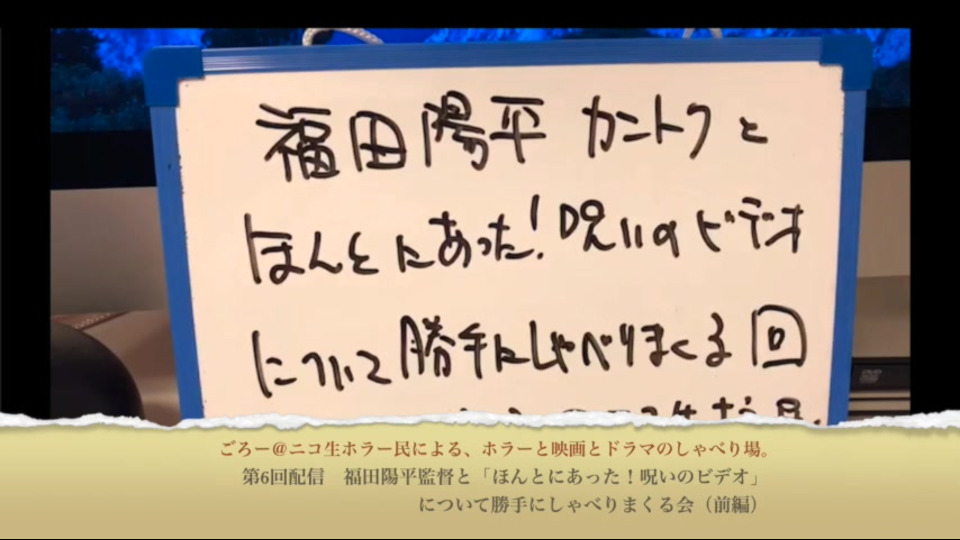 福田陽平 カントクと
ほんとにあった!呪いのビデオ
について勝手にしゃべりまくる回
DVD
ごろー@ニコ生ホラー民による、ホラーと映画とドラマのしゃべり場。
第6回配信 福田陽平監督と「ほんとにあった!呪いのビデオ」
について勝手にしゃべりまくる会(前編)